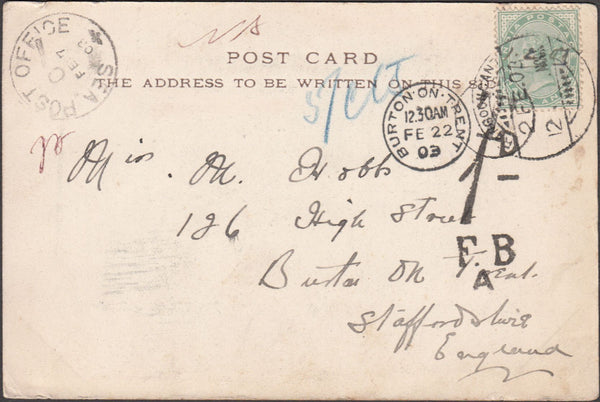 POST CARD
THE ADDRESS TO BE WRITTEN ON THIS
SEA POST OFFICE
FE 7
03
5/cts
BURTON-ON-TRENT
12.30AM
FE 22
03
Miss. M. Hobbs
126 High Street
Burton On Trent.
Staffordshire
England
1D
F.B
A